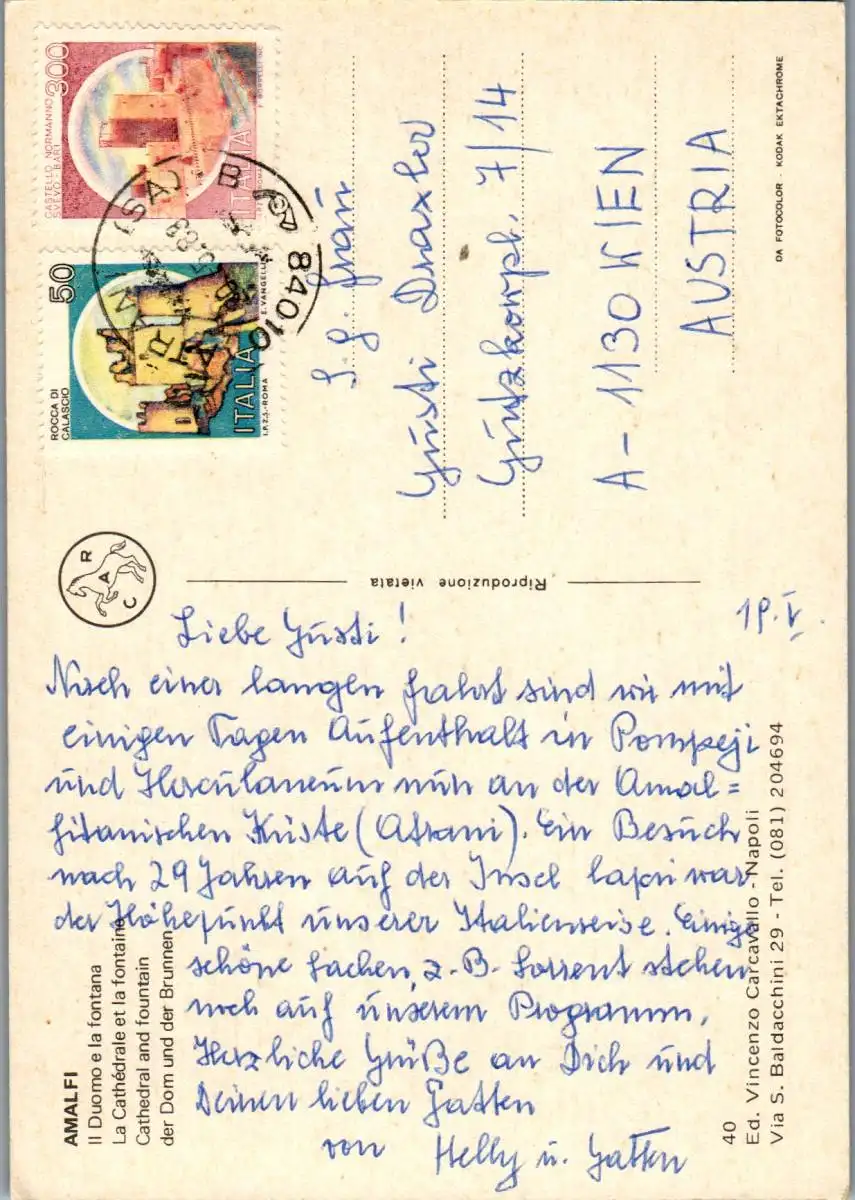 CASTELLO NORMANNO
SVEVO - BARI
300
ITALIA
50
ROCCA DI
CALASCIO
ITALIA
I.P.Z.S. - ROMA
E. VANGELLI
84010 ATRANI (SA) B
S. g. Frau
Gusti Draxler
Gutzkowpl. 7/14
A - 1130 WIEN
AUSTRIA
DA FOTOCOLOR - KODAK EKTACHROME
CAR
Riproduzione vietata
19. V.
Liebe Gusti!
Nach einer langen Fahrt sind wir mit
einigen Tagen Aufenthalt in Pompeji
und Herculaneum nun an der Amal=
fitanischen Küste (Atrani). Ein Besuch
nach 29 Jahren auf der Insel Capri war
der Höhepunkt unserer Italienreise. Einige
schöne Sachen, z. B. Sorrent stehen
noch auf unserem Programm,
Herzliche Grüße an Dich und
Deinen lieben Gatten
von Helly u. Gatten
AMALFI
Il Duomo e la fontana
La Cathédrale et la fontaine
Cathedral and fountain
der Dom und der Brunnen
40
Ed. Vincenzo Carcavallo - Napoli
Via S. Baldacchini 29 - Tel. (081) 204694